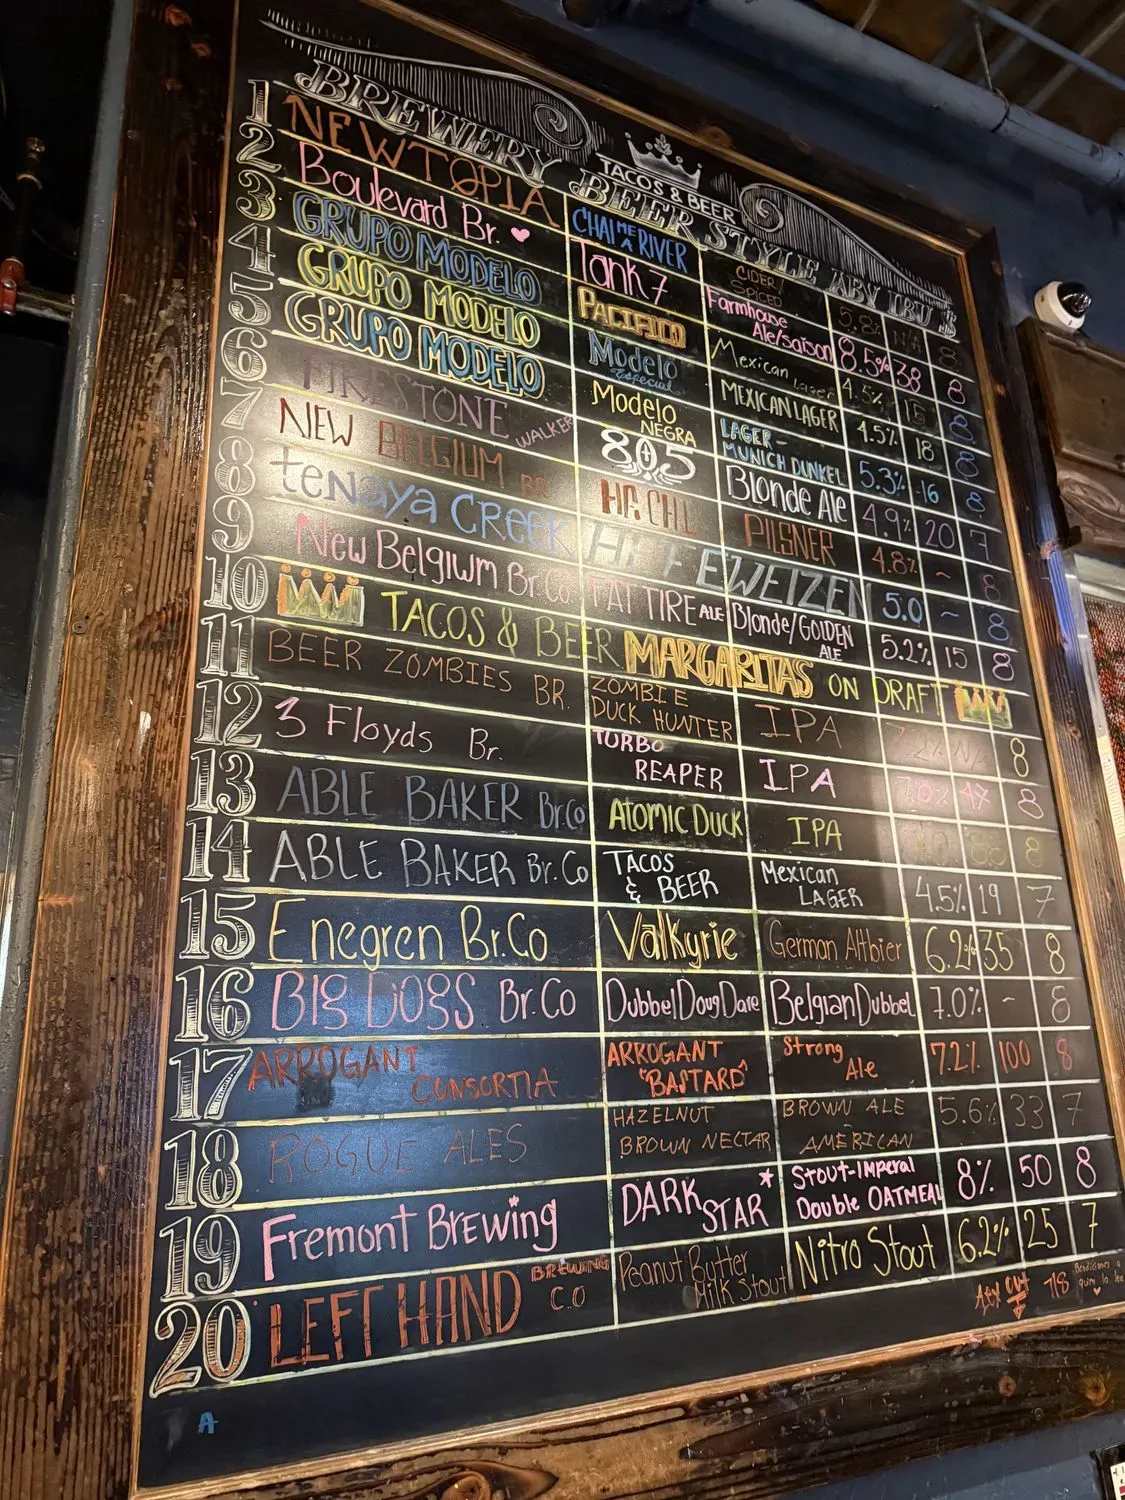 TACOS & BEER
BREWERY BEER STYLE ABV IBU $
1 NEWTOPIA CHAI ME A RIVER CIDER/ SPICED 5.8% N/A 8
2 Boulevard Br. Tank 7 Farmhouse Ale/Saison 8.5% 38 8
3 GRUPO MODELO PACIFICO Mexican Lager 4.5% 8
4 GRUPO MODELO Modelo Especial MEXICAN LAGER 4.5% 18 8
5 GRUPO MODELO Modelo NEGRA LAGER- MUNICH DUNKEL 5.3% 16 8
6 FIRESTONE WALKER 805 Blonde Ale 4.9% 20 7
7 NEW BELGIUM BR PILSNER 4.8% ~ 8
8 tenaya Creek HEFEWEIZEN 5.0 - 8
9 New Belgium Br. Co. FAT TIRE ALE Blonde/GOLDEN ALE 5.2% 15 8
10 TACOS & BEER MARGARITAS ON DRAFT
11 BEER ZOMBIES BR. ZOMBIE DUCK HUNTER IPA 7.2% N/A 8
12 3 Floyds Br. TURBO REAPER IPA 47 8
13 ABLE BAKER Br.Co ATOMIC DUCK IPA 8
14 ABLE BAKER Br.Co TACOS & BEER Mexican LAGER 4.5% 19 7
15 Enegren Br.Co Valkyrie German Altbier 6.2% 35 8
16 BIG DOGS Br.Co Dubbel Doug Dare Belgian Dubbel 7.0% - 8
17 ARROGANT CONSORTIA ARROGANT "BASTARD" Strong Ale 7.2% 100 8
18 ROGUE ALES HAZELNUT BROWN NECTAR BROWN ALE AMERICAN 5.6% 33 7
19 Fremont BREWING DARK STAR* Stout-Imperal Double OATMEAL 8% 50 8
20 LEFT HAND BREWING C.O Peanut Butter Milk Stout Nitro Stout 6.2% 25 7
A